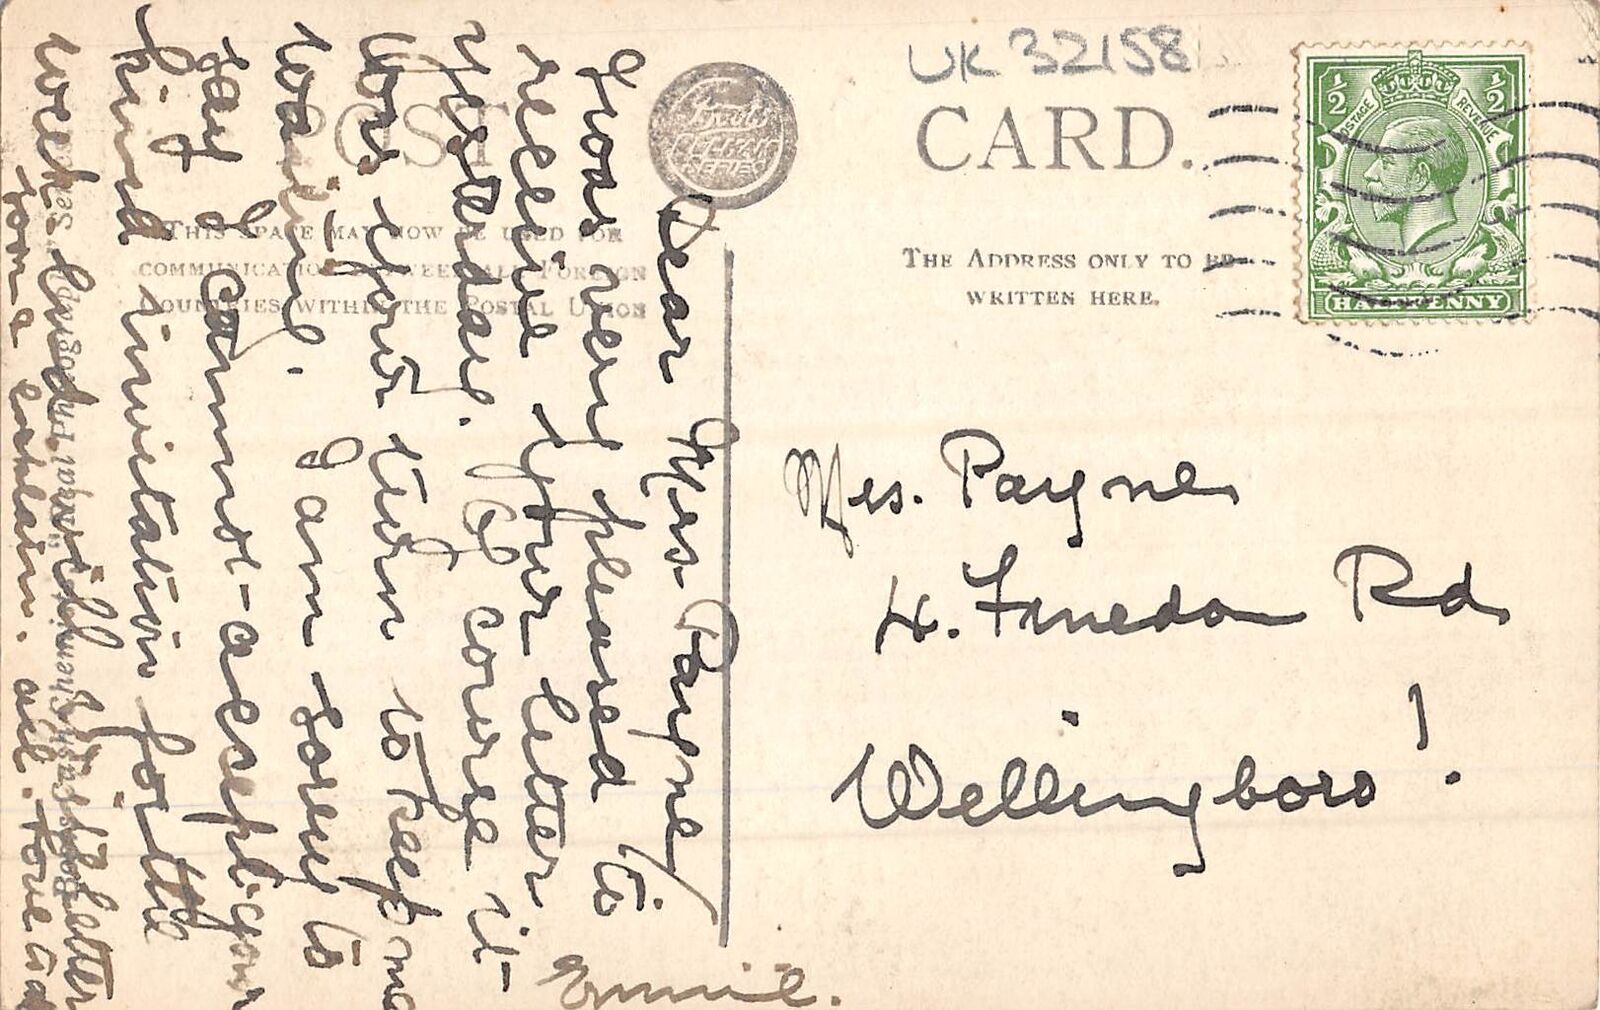 UK 32158
POST CARD.
THIS SPACE MAY NOW BE USED FOR
COMMUNICATION BETWEEN ALL FOREIGN
COUNTRIES WITHIN THE POSTAL UNION
THE ADDRESS ONLY TO BE
WRITTEN HERE.
1/2 1/2
POSTAGE REVENUE
HALFPENNY
Mrs. Payne
4. Finedon Rd
Wellingboro'.
Dear Mrs. Payne,
I was very pleased to
receive your letter
yesterday. Of course it
was your turn to keep me
waiting. I am sorry to
say I cannot accept your
kind invitation for the
week end will letter
some explain all. Love to all
Emmie.